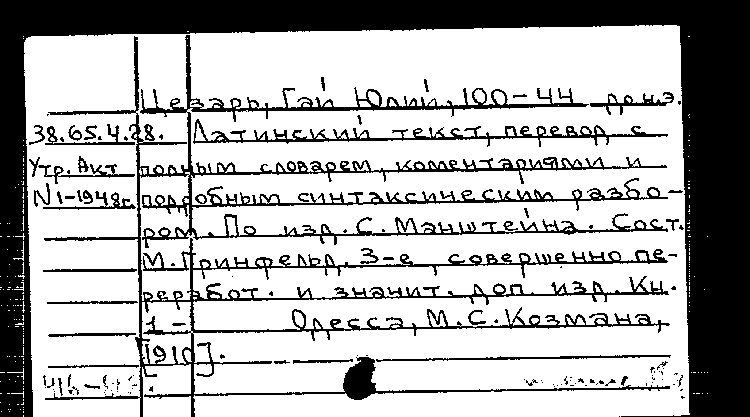 Цезарь, Гай Юлий, 100-44 до н.э.
38.65.4.28. Латинский текст, перевод с
Утр. Акт полным словарем, коментариями и
N1-1948г. подробным синтаксическим разбо-
ром. По изд. С. Манштейна. Сост.
М. Гринфельд. 3-е, совершенно пе-
реработ. и значит. доп. изд. Кн.
1- Одесса, М.С. Козмана,
[1910].